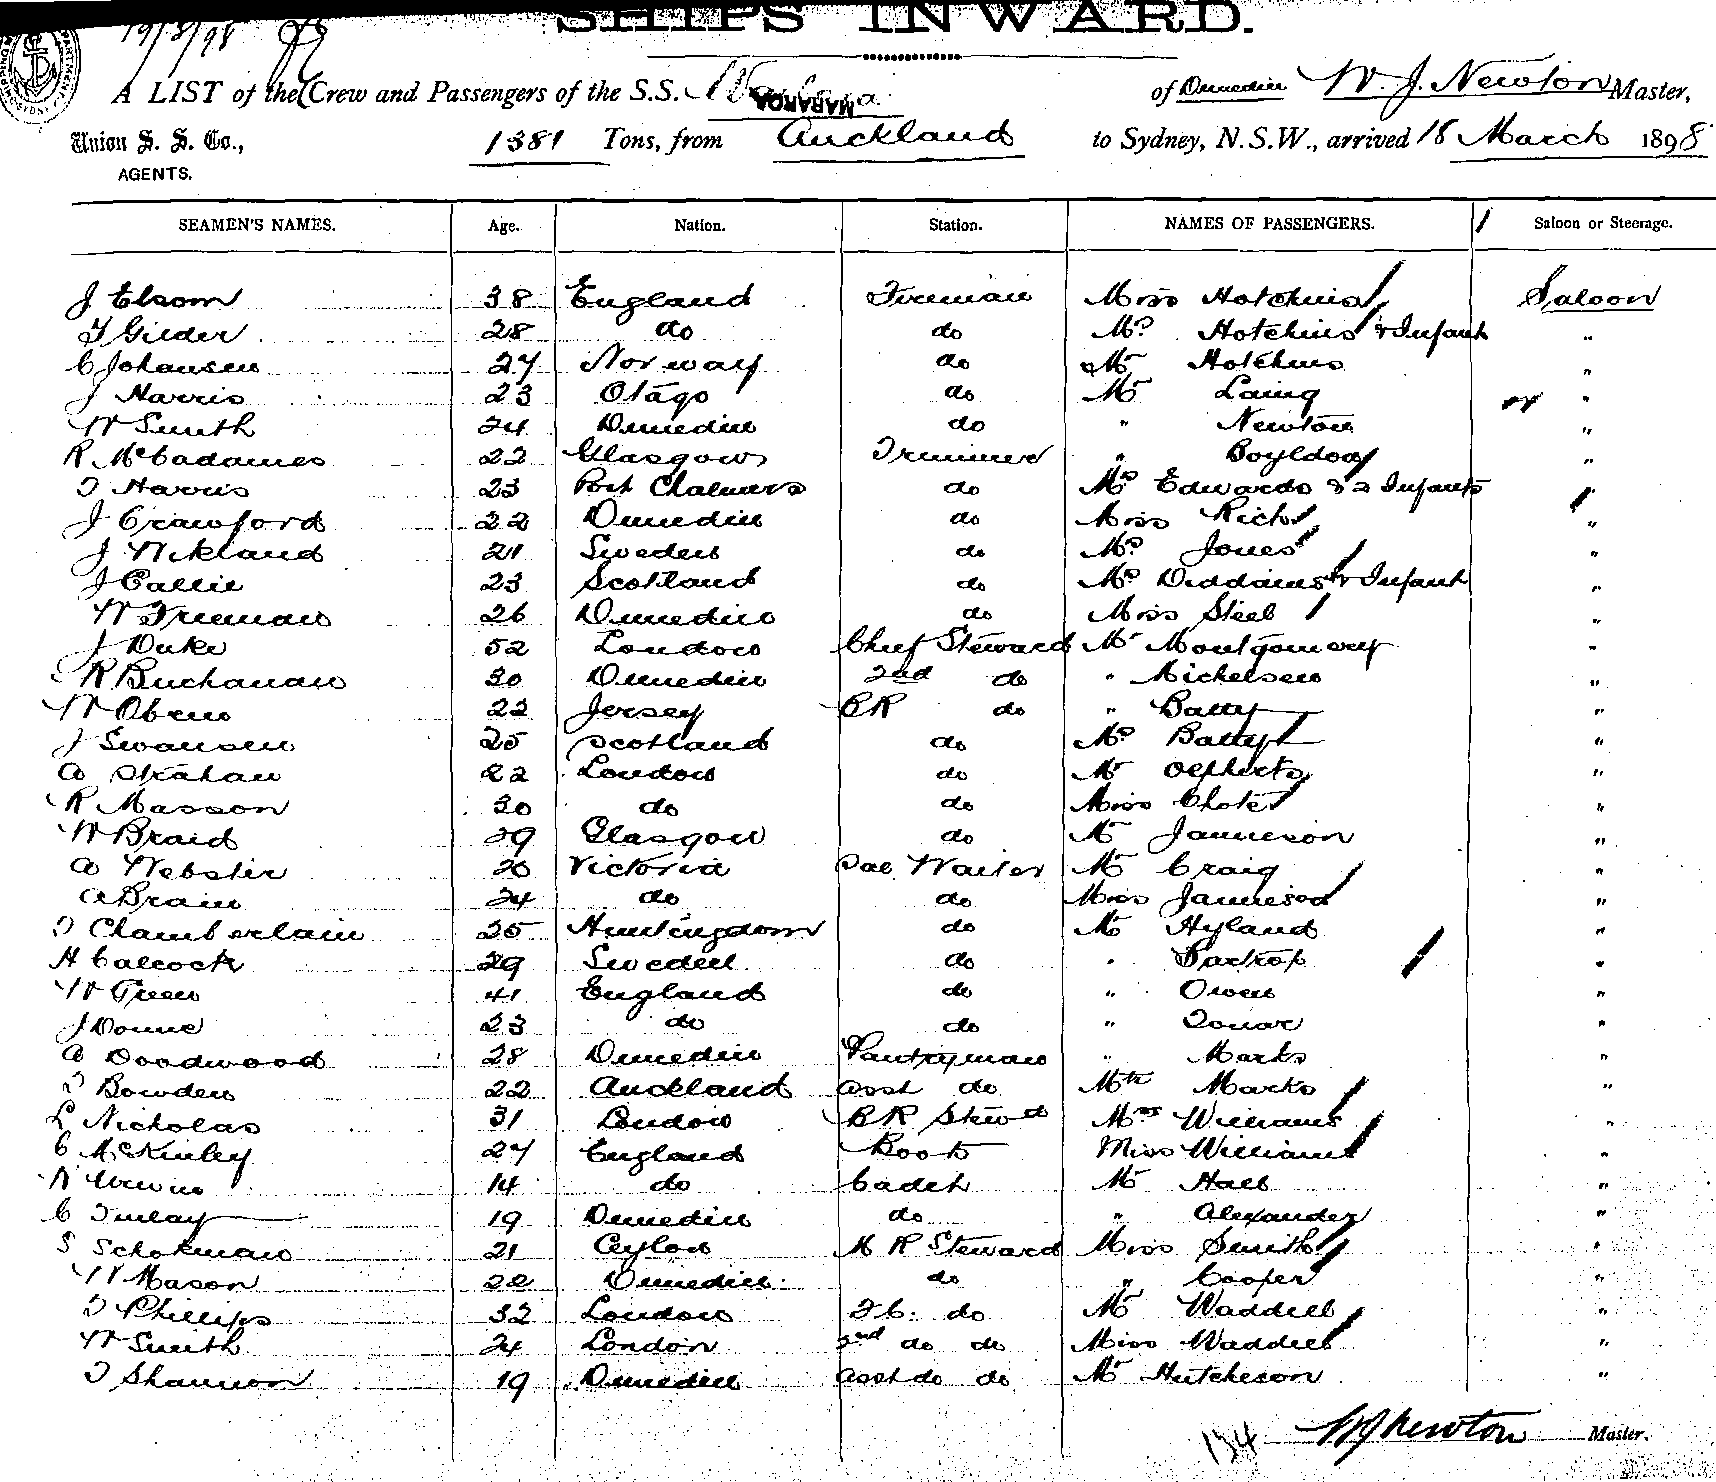 19/3/98
SHIPS INWARD.
A LIST of the Crew and Passengers of the S.S. MARAROA of Dunedin W. J. Newton Master,
Union S. S. Co., 1381 Tons, from Auckland to Sydney, N.S.W., arrived 18 March 1898
AGENTS.
SEAMEN'S NAMES. Age. Nation. Station. NAMES OF PASSENGERS. Saloon or Steerage.
J Elsom 38 England Fireman Miss Hotchins Saloon
T Gilder 28 do do Mrs Hotchins & Infant "
C Johansen 27 Norway do Mr Hotchins "
J Harris 23 Otago do Mr Laing "
W Smith 24 Dunedin do " Newton "
R McCadames 22 Glasgow Trimmer " Boyldon "
T Harris 23 Port Chalmers do Mrs Edwards & 2 Infants
J Crawford 22 Dunedin do Miss Rich "
J Wikland 21 Sweden do Mrs Jones "
J Callie 23 Scotland do Mrs Diddams & Infant "
W Freeman 26 Dunedin do Miss Steel "
J Duke 52 London Chief Steward Mr Montgomery "
R Buchanan 30 Dunedin 2nd do " Michelsen "
W 22 Jersey BR do " Batty "
J Swansen 25 Scotland do Mrs Batty "
A Strahan 22 London do Mr "
R Masson 30 do do Miss Chote "
W Braid 29 Glasgow do Mr Jamieson "
A Webster 20 Victoria Sal Waiter Mr Craig "
A Brain 24 do do Miss Jamieson "
T Chamberlain 25 Huntingdom do Mr Hyland "
H Calcock 29 Sweden do " Bartrop "
W Green 41 England do " Owen "
J Donne 23 do do " "
A Doodwood 28 Dunedin Pantryman " Marks "
T Bowden 22 Auckland Asst do Mtr Marks "
L Nicholas 31 London BR Stewd Mrs Williams "
C McKinley 27 England Boots Miss Williams "
14 do Cadet Mr Hall "
C Finlay 19 Dunedin do " Alexander "
S Schokman 21 Ceylon M R Steward Miss Smith "
W Mason 22 Dunedin do " Cooper "
T Phillips 32 London F.C. do Mr Waddell "
W Smith 24 London 2nd do do Miss Waddell "
T Shannon 19 Dunedin Asst do do Mr Hutcheson "
134 W J Newton Master.